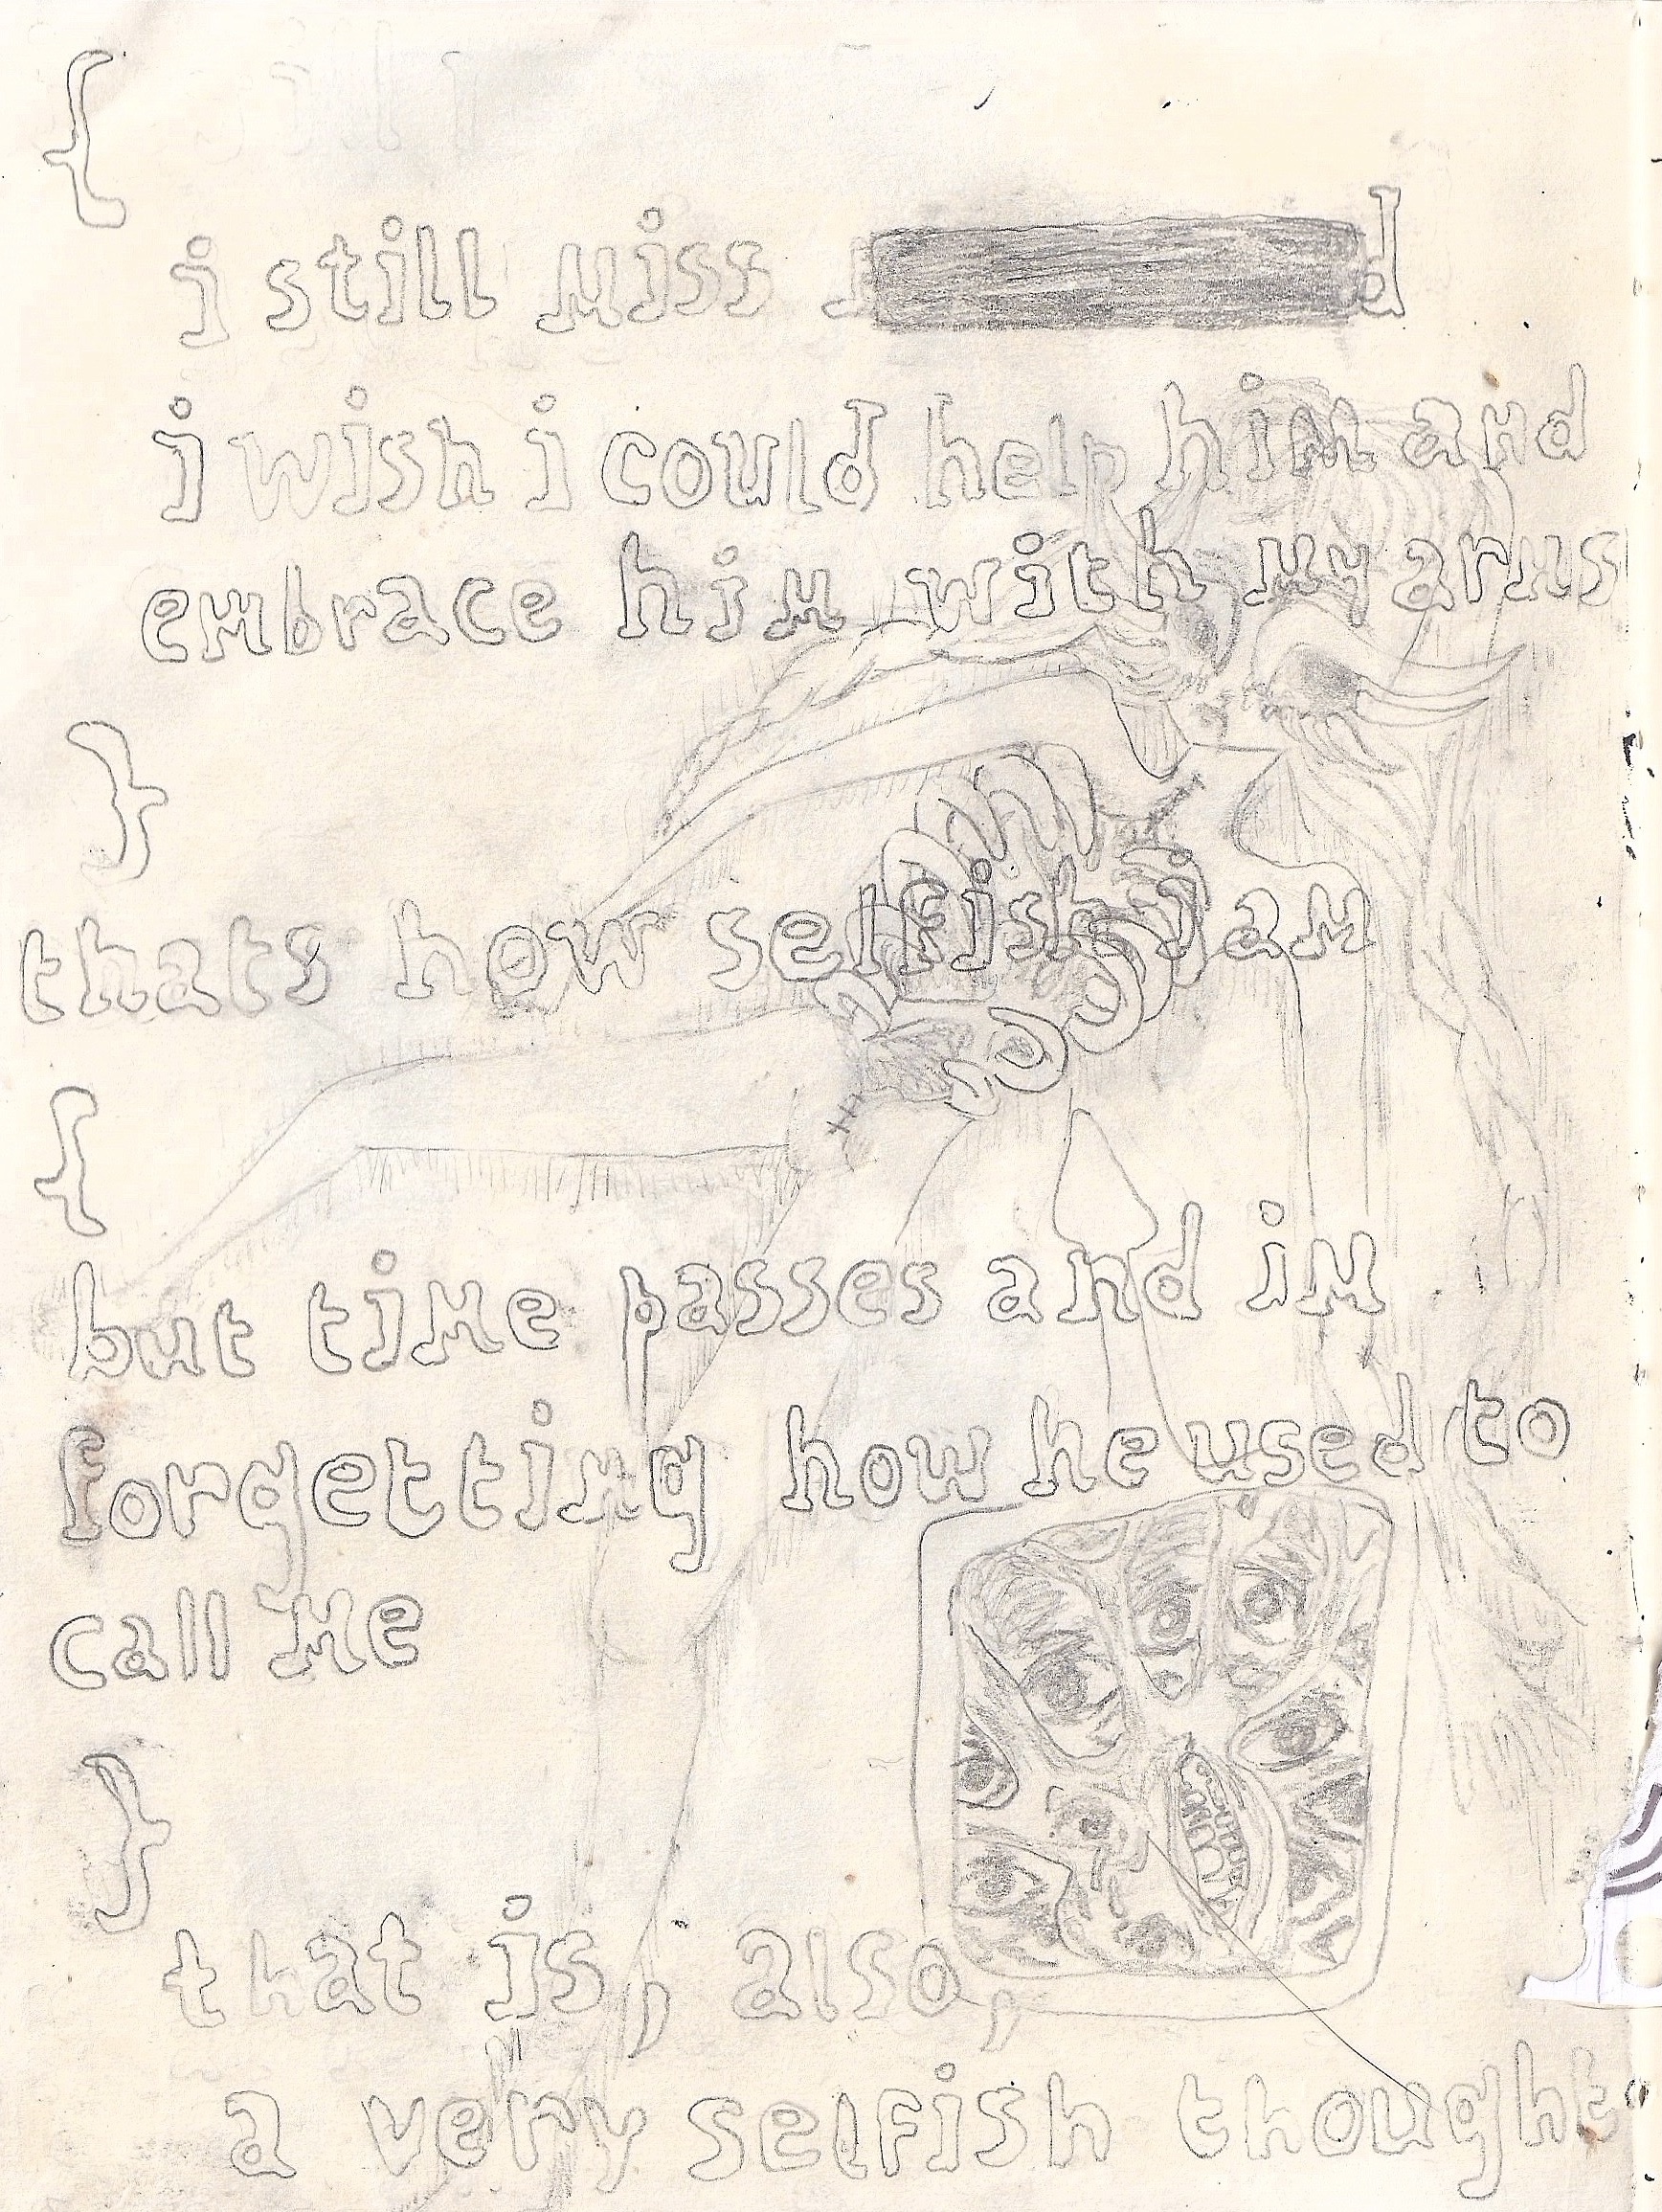 {
i still miss d
i wish i could help him and
embrace him with my arms
}
thats how selfish i am
{
but time passes and im
forgetting how he used to
call me
}
that is, also,
a very selfish thought